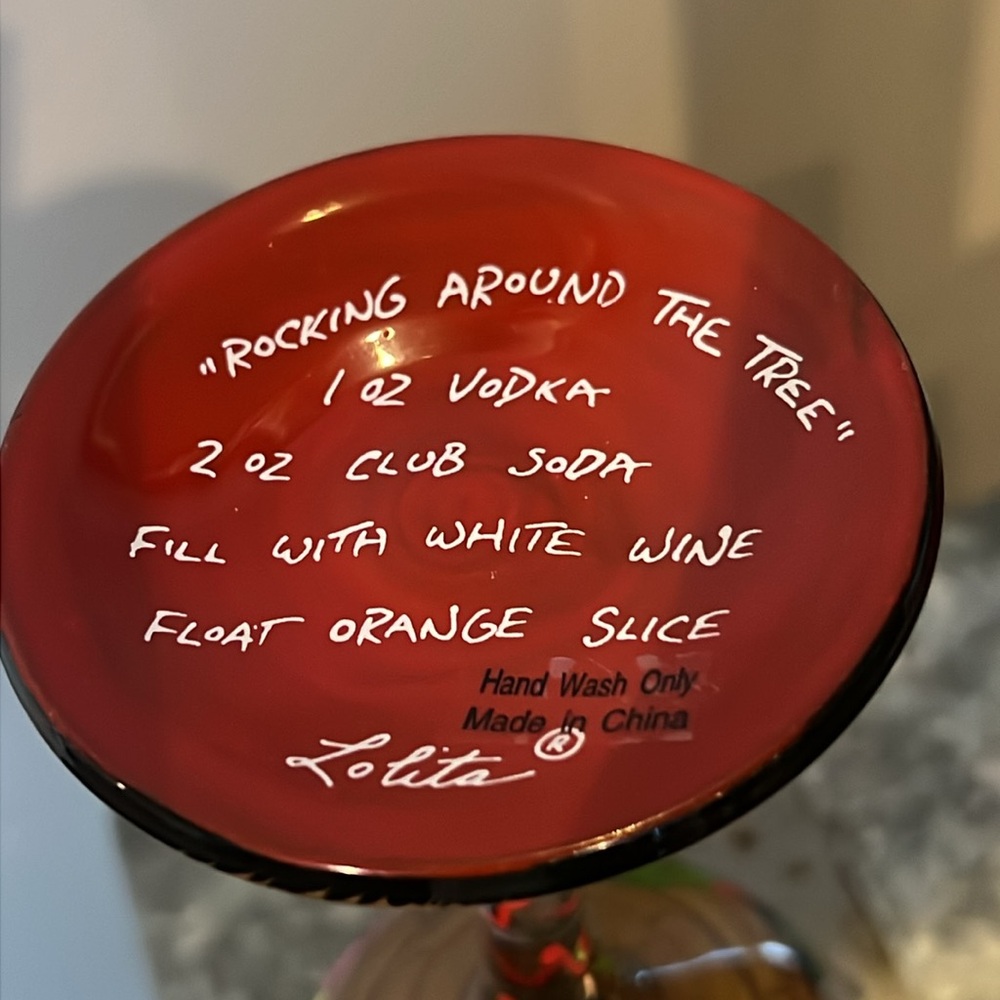 "ROCKING AROUND THE TREE"
1 OZ VODKA
2 OZ CLUB SODA
FILL WITH WHITE WINE
FLOAT ORANGE SLICE
Hand Wash Only
Made in China
Lolita ®